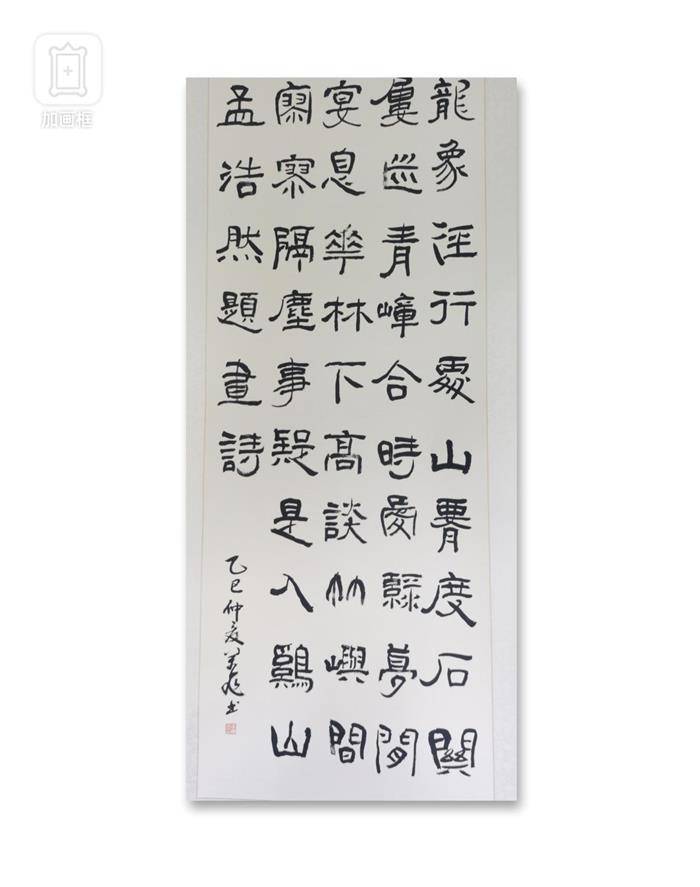 龍象徑行處山腰度石關
屢巡青嶂合時愛綠夢間
宴息華林下高談竹嶼間
寥寥隔塵事疑是入鷄山
孟浩然題畫詩
乙巳仲夏书
加画框